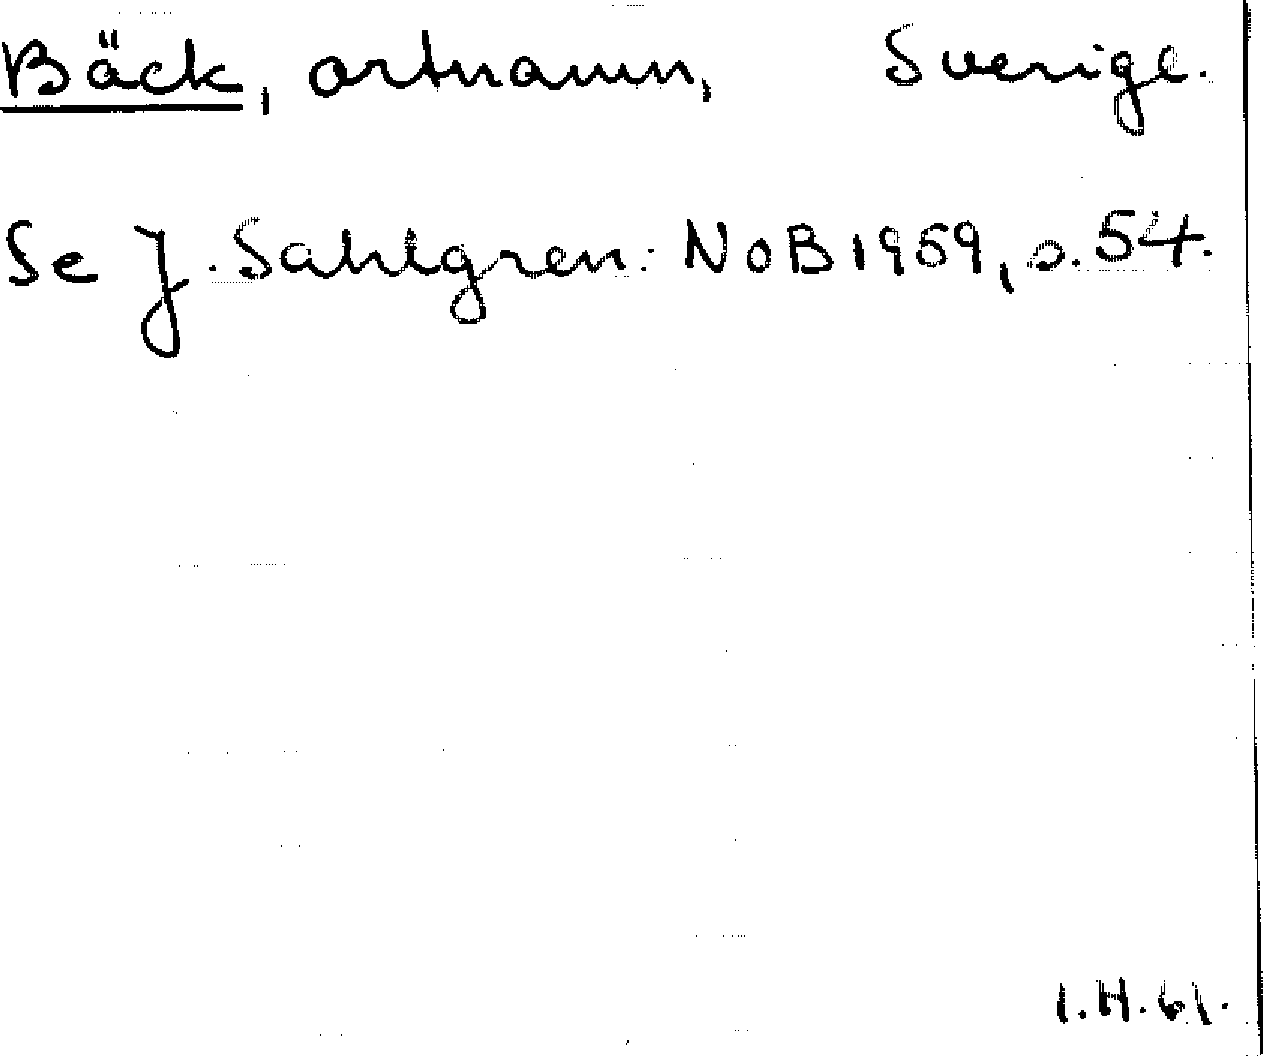 Bäck, ortnamn, Sverige.
Se J. Sahlgren: NoB 1959, s. 54.
I.H. 61.